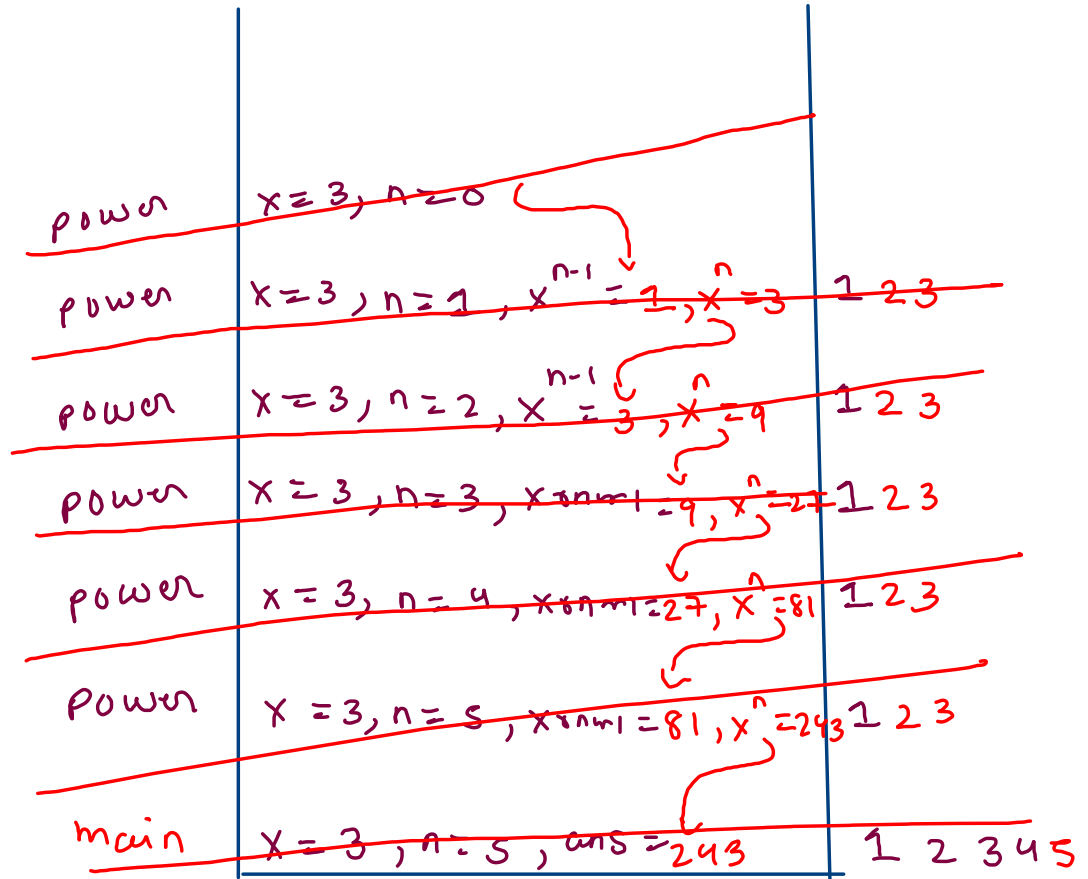 power x = 3, n = 0
power x = 3, n = 1, x^n-1 = 1, x^n = 3 1 2 3
power x = 3, n = 2, x^n-1 = 3, x^n = 9 1 2 3
power x = 3, n = 3, xxnm1 = 9, x^n = 27 1 2 3
power x = 3, n = 4, xxnm1 = 27, x^n = 81 1 2 3
Power x = 3, n = 5, xxnm1 = 81, x^n = 243 1 2 3
main x = 3, n = 5, ans = 243 1 2 3 4 5